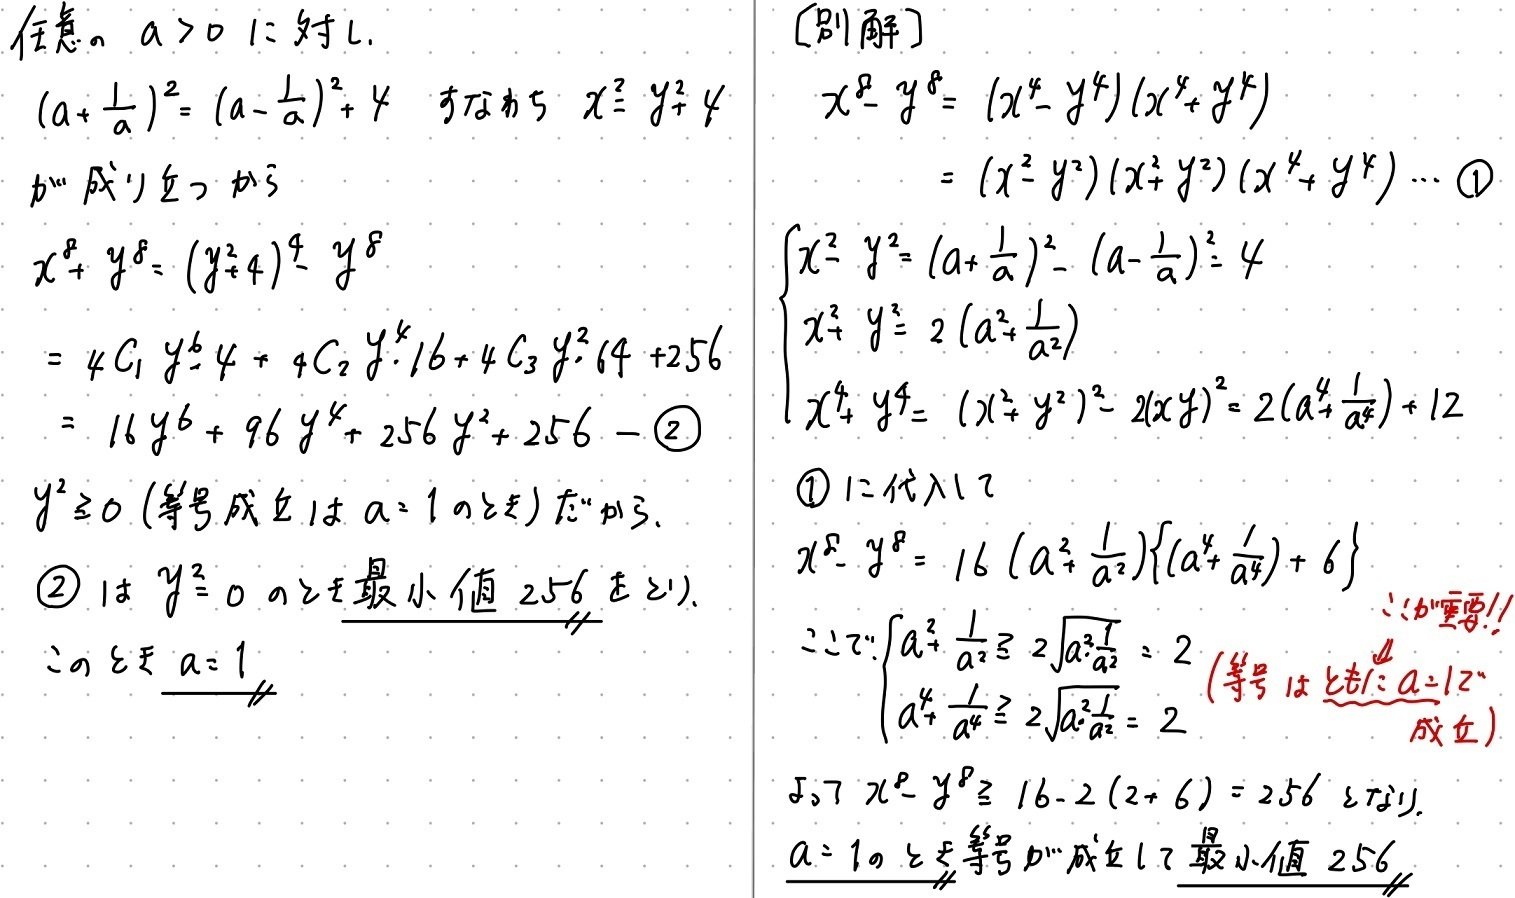 任意の a>0 に対し.
(a+1/a)²=(a-1/a)²+4 すなわち x²=y²+4
が成り立つから
x⁸+y⁸=(y²+4)⁴-y⁸
=4C1 y⁶・4+4C2 y⁴・16+4C3 y²・64+256
=16y⁶+96y⁴+256y²+256 ー②
y²≧0 (等号成立は a=1のとき)だから.
②は y²=0 のとき最小値 256 をとり.
このとき a=1
[別解]
x⁸-y⁸=(x⁴-y⁴)(x⁴+y⁴)
=(x²-y²)(x²+y²)(x⁴+y⁴)…①
x²-y²=(a+1/a)²-(a-1/a)²=4
x²+y²=2(a²+1/a²)
x⁴+y⁴=(x²+y²)²-2(xy)²=2(a⁴+1/a⁴)+12
①に代入して
x⁸-y⁸=16(a²+1/a²){(a⁴+1/a⁴)+6}
ここが重要!!
ここで. a²+1/a²≧2√(a²・1/a²)=2
a⁴+1/a⁴≧2√(a²・1/a²)=2
(等号はともに a=1で
成立)
よって x⁸-y⁸≧16・2(2+6)=256 となり.
a=1のとき等号が成立して最小値 256